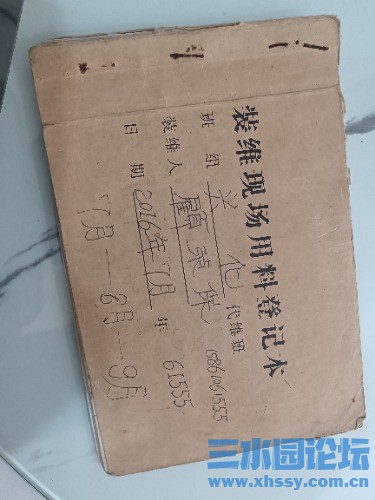 装维现场用料登记本
班 组 兴 化 代维班
装维人 顾荣保 15861061555
日 期 2016年7月 年 61555
7月——8月——9月
三水园论坛
www.xhssy.com.cn